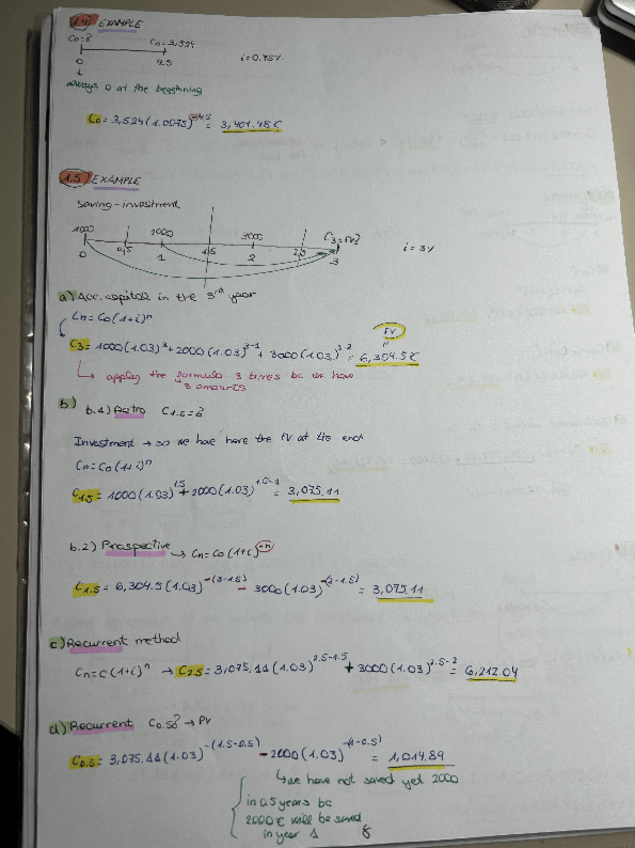 1.4) EXAMPLE
C0=? Cn=3,524
0 4.5 i=0.75%
always 0 at the beginning
C0=3,524(1.0075)^-4.5 = 3,401.48€
1.5) EXAMPLE
saving-investment
1000 2000 3000 C3=FV?
0 0,5 1 1.5 2 2,5 3 i=3%
a) Acc. capital in the 3rd year
Cn=C0(1+i)^n
FV
C3=1000(1.03)^3+2000(1.03)^3-1+3000(1.03)^3-2=6,304.5€
apply the formula 3 times bc we have
3 amounts
b)
b.1) Retro C1.5=?
Investment → so we have have the FV at the end
Cn=C0(1+i)^n
C1.5=1000(1.03)^1.5+2000(1.03)^1.5-1=3,075.11
b.2) Prospective → Cn=C0(1+i)^-n
C1.5=6,304.5(1.03)^-(3-1.5)-3000(1.03)^-(2-1.5)=3,075.11
c) Recurrent method
Cn=C(1+i)^n → C2.5=3,075.11(1.03)^2.5-1.5+3000(1.03)^2.5-2=6,212.04
d) Recurrent C0.5? → PV
C0.5=3,075.11(1.03)^-(1.5-0.5)-2000(1.03)^-(1-0.5)=1,014.89
we have not saved yet 2000
in 0.5 years bc
2000€ will be saved
in year 1
8